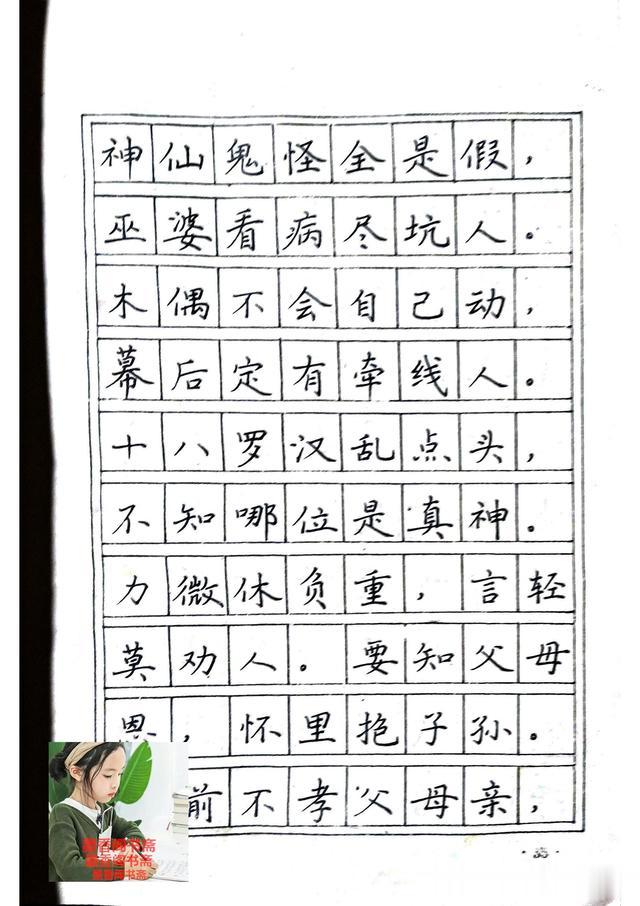 神仙鬼怪全是假，
巫婆看病尽坑人。
木偶不会自己动，
幕后定有牵线人。
十八罗汉乱点头，
不知哪位是真神。
力微休负重，言轻
莫劝人。要知父母
恩，怀里抱子孙。
前不孝父母亲，
墨香阁书斋
墨香阁书斋
墨香阁书斋